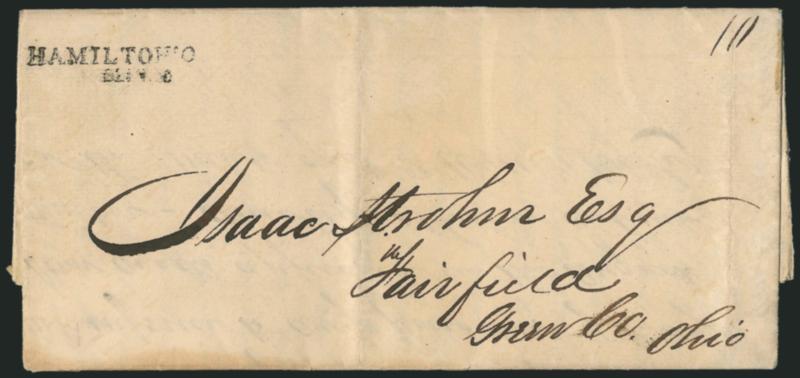 HAMILTON O
10
Isaac Strohm Esq
at
Fairfield
Green Co. Ohio